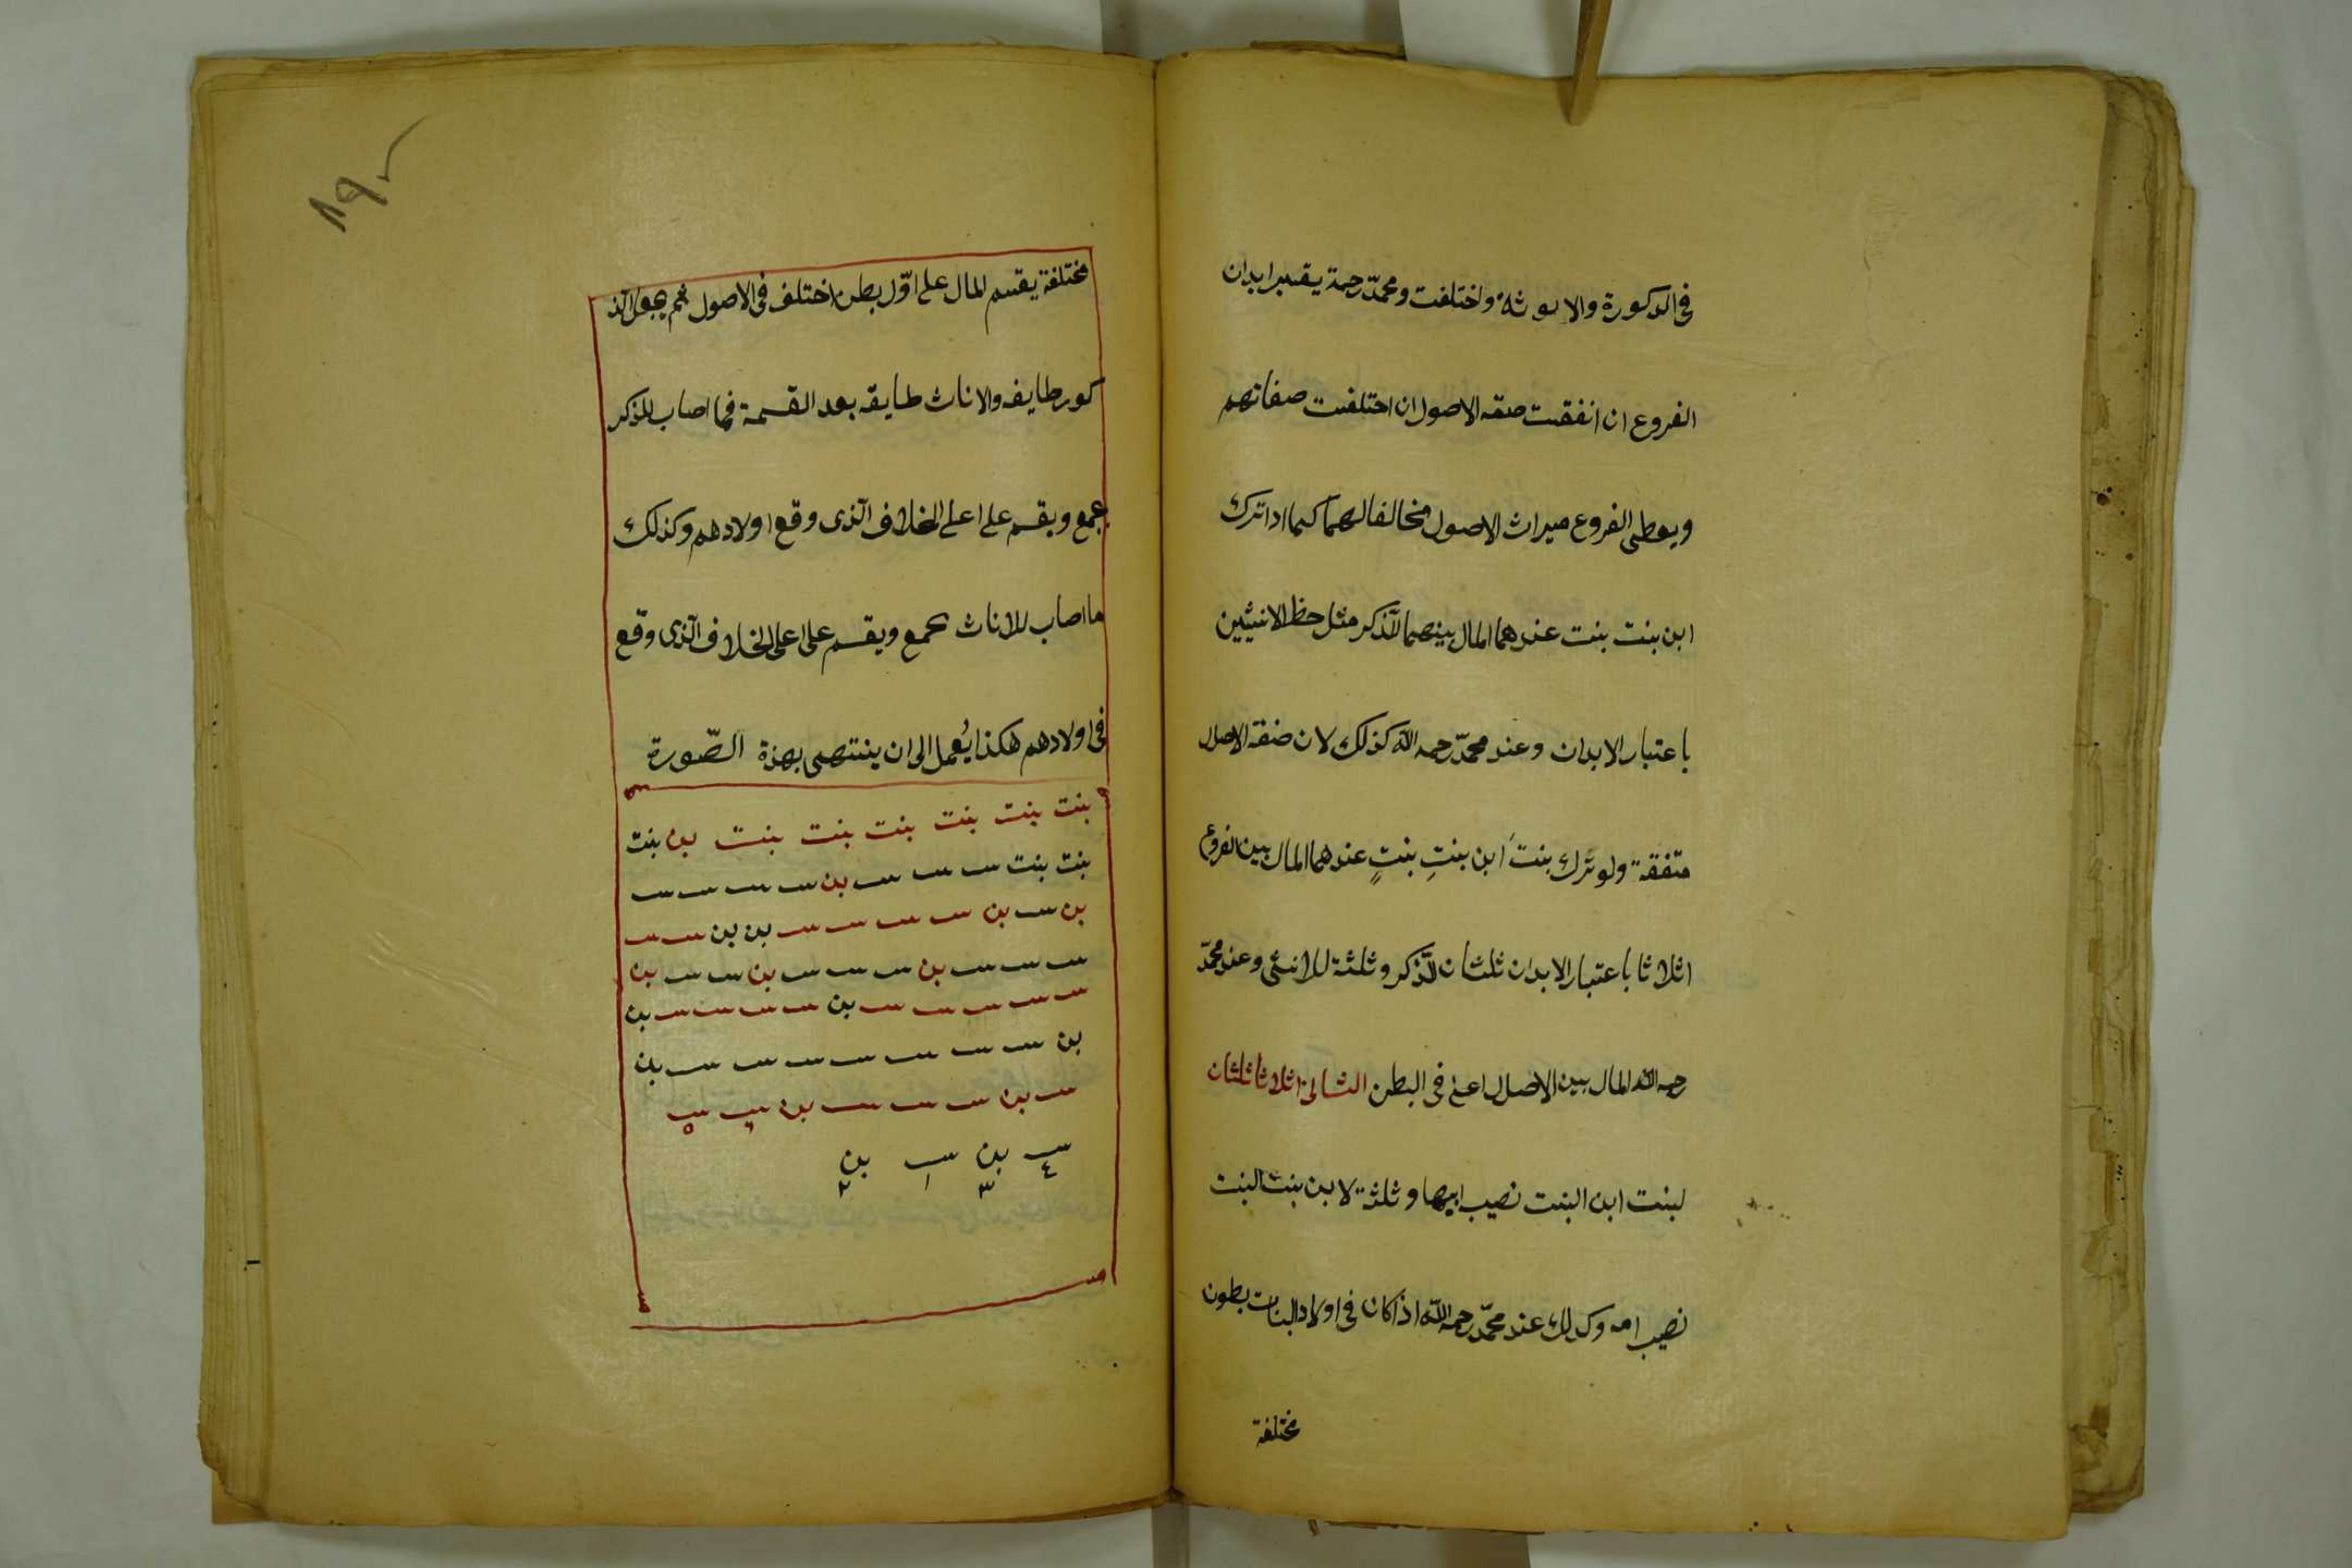 في الذكورة والانوثة واختلفت ومحمد رحمة يقسم ابدان
الفروع ان اتفقت صفة الاصول ان اختلفت صفاتهم
ويعطى الفروع ميراث الاصول مخالفا لهما كما اذا ترك
ابن بنت بنت عندهما المال بينهما للذكر مثل حظ الانثيين
باعتبار الابدان وعند محمّد رحمه الله كذلك لان صفة الاصول
متفقة ولو ترك بنتَ ابن بنتِ بنتٍ عندهما المال بين الفروع
اثلاثا باعتبار الابدان ثلثان للذكر وثلثة للانثى وعند محمّد
رحمه الله المال بين الاصول اعنى فى البطن الثانى اثلاثا ثلثان
لبنت ابن البنت نصيب ابيها وثلثة لابن بنت البنت
نصيب امه وكذلك عند محمّد رحمه الله اذا كان فى اولاد البنات بطون
مختلفة
١٩٠
مختلفة يقسم المال على اوّل بطن اختلف فى الاصول ثم يجعل الذ
كور طايفه والاناث طايفه بعد القسمة فما اصاب للذكر
يجمع ويقسم على اعلى الخلاف الّذى وقع اولادهم وكذلك
ما اصاب للاناث يجمع ويقسم على اعلى الخلاف الّذى وقع
فى اولادهم هكذا يُعمل الى ان ينتهى بهذة الصّورة
بنت بنت بنت بنت بنت بنت بن بنت
بنت بنت بن
بن بن بن بن
بن بن بن
بن بن
بن بن
بن بن
بن بن
٤ ٣ ١ ٢